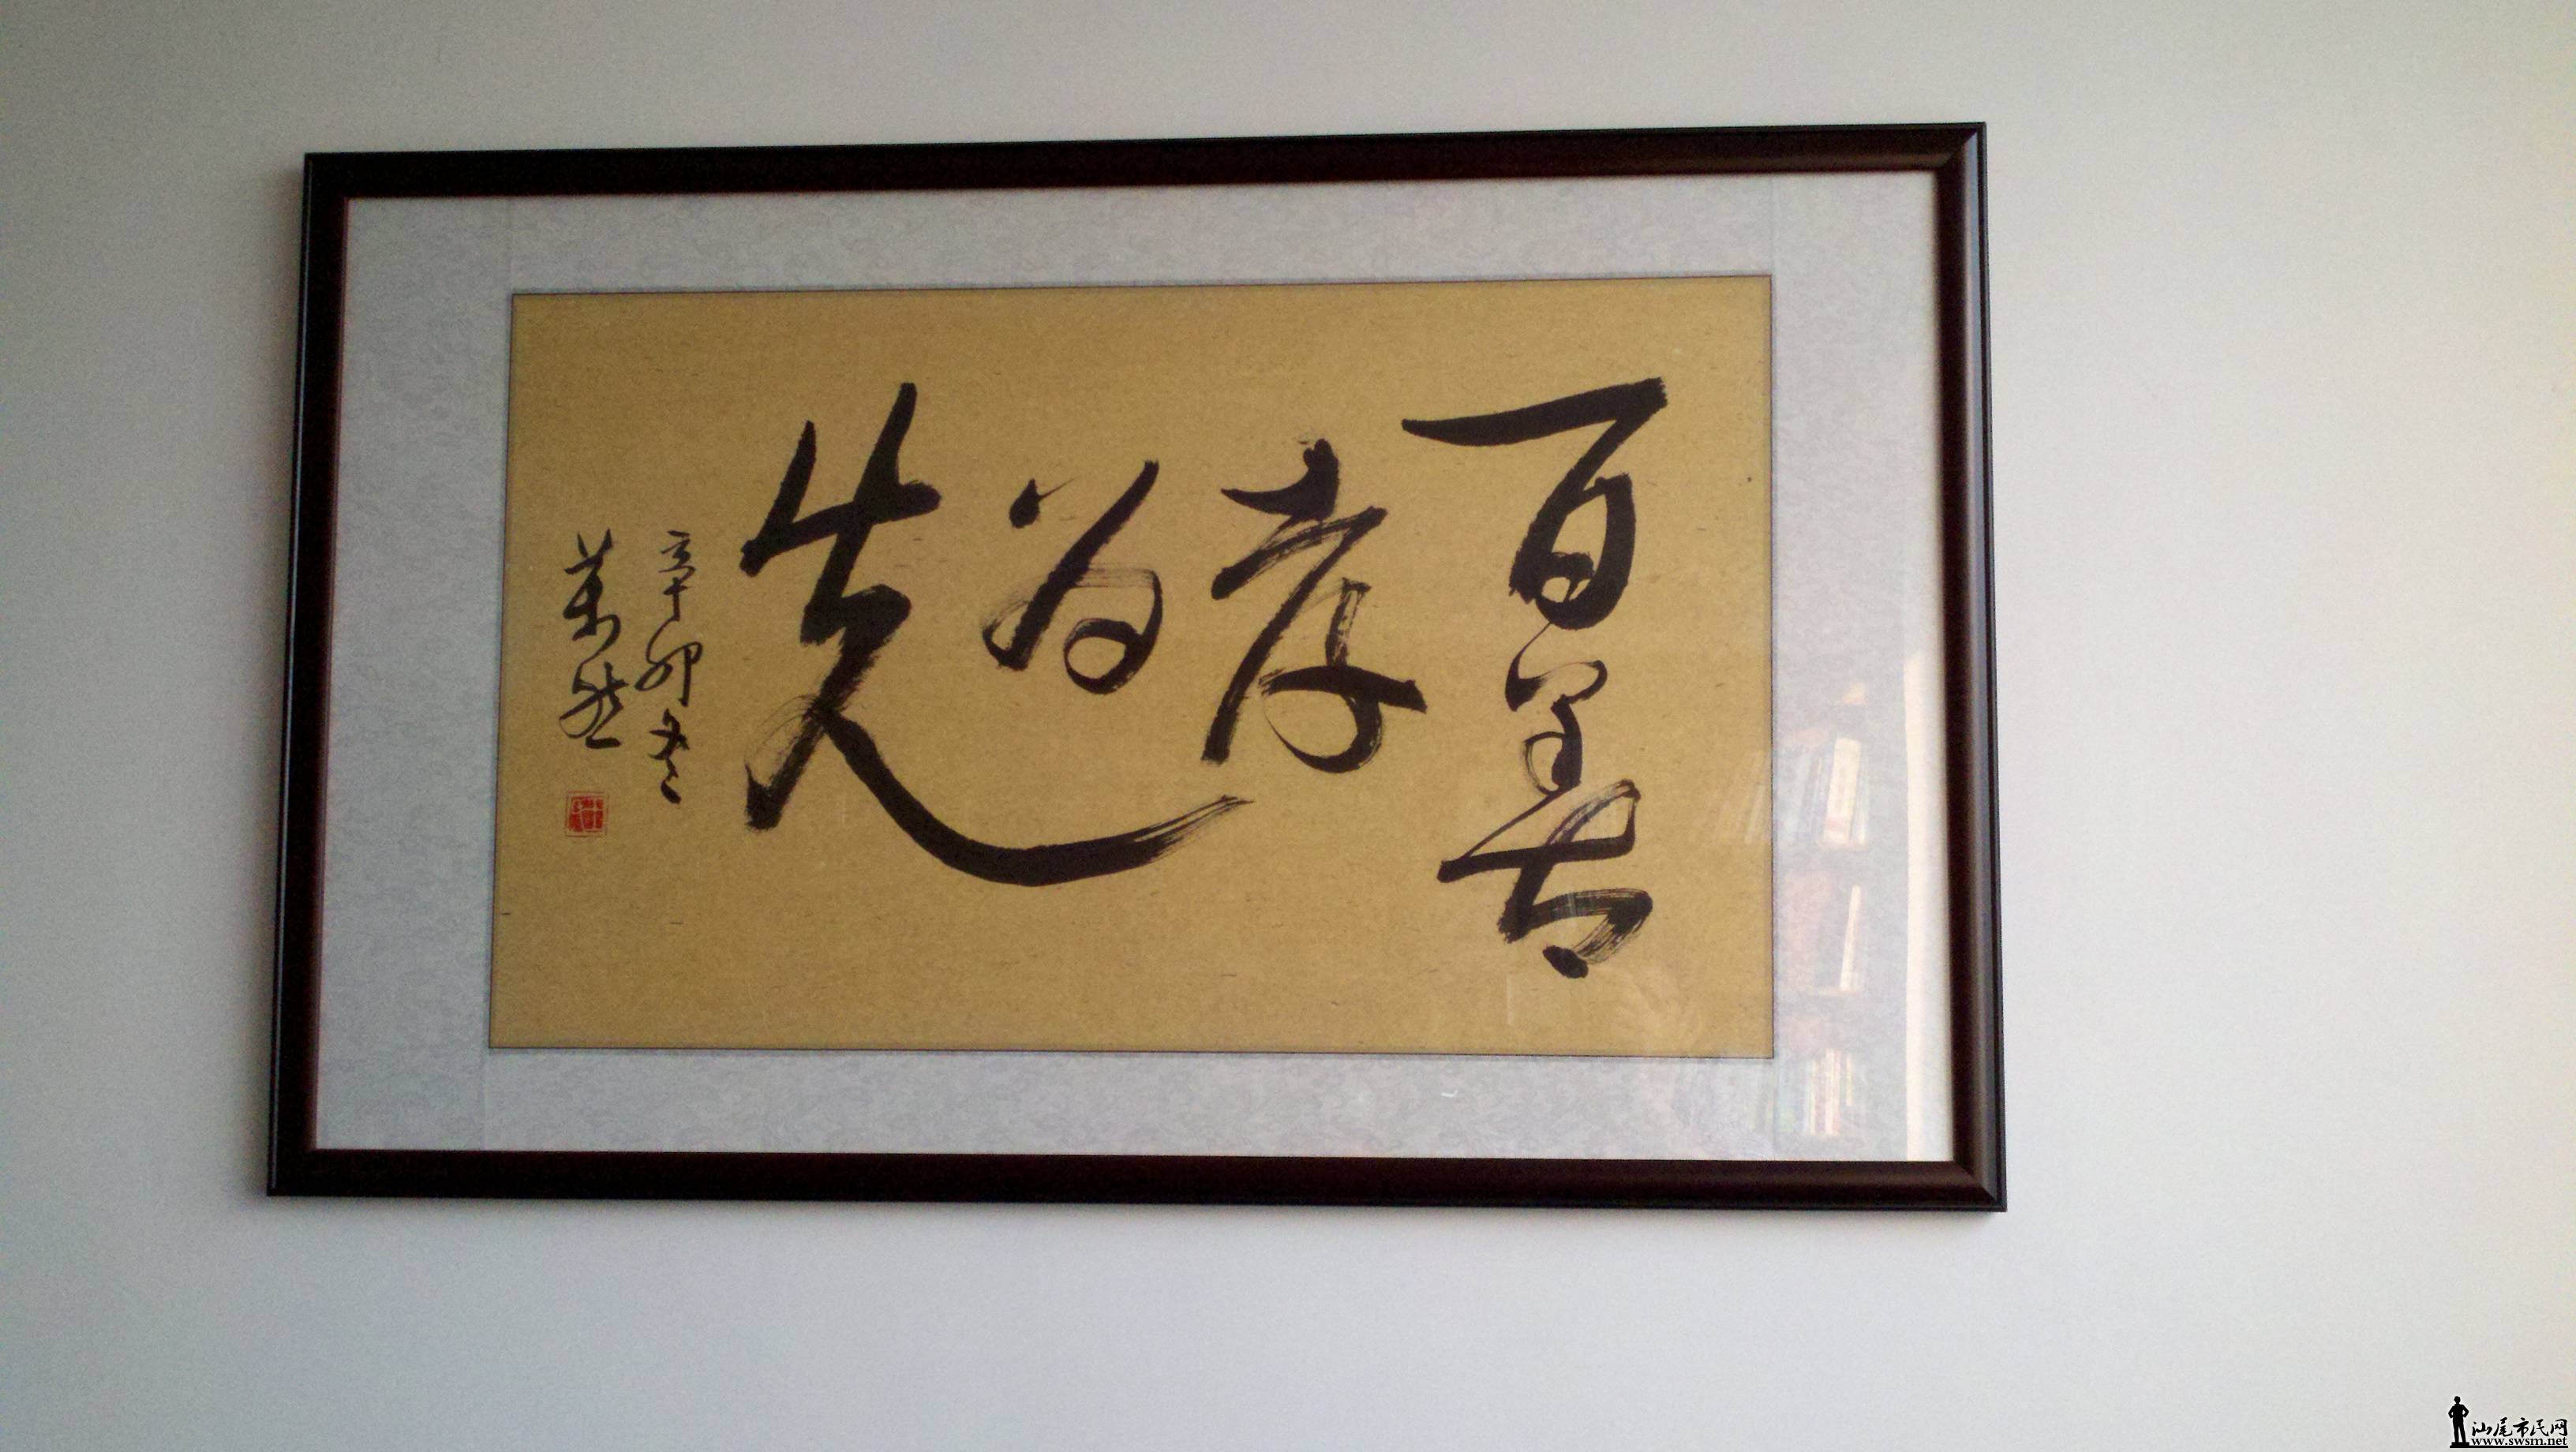 百善
孝
为
先
辛卯冬
汕尾市民网
www.swsm.net